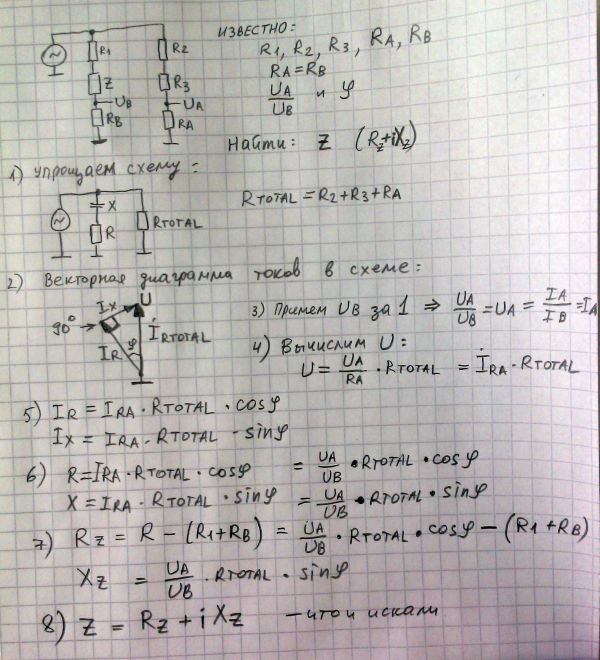 ИЗВЕСТНО:
R1, R2, R3, RA, RB
RA=RB
UA/UB и φ
R1
R2
Z
R3
UB
UA
RB
RA
Найти: Z (Rz+iXz)
1) Упрощаем схему:
X
R
RTOTAL
RTOTAL = R2+R3+RA
2) Векторная диаграмма токов в схеме:
Ix
U
90°
φ
IR
İRTOTAL
3) Примем UB за 1 ⇒ UA/UB = UA = IA/IB = IA
4) Вычислим U:
U = UA/RA · RTOTAL = İRA · RTOTAL
5) IR = IRA · RTOTAL · cosφ
Ix = IRA · RTOTAL · sinφ
6) R = IRA · RTOTAL · cosφ = UA/UB · RTOTAL · cosφ
X = IRA · RTOTAL · sinφ = UA/UB · RTOTAL · sinφ
7) Rz = R − (R1+RB) = UA/UB · RTOTAL · cosφ − (R1+RB)
Xz = UA/UB · RTOTAL · sinφ
8) Z = Rz + iXz – что и искали